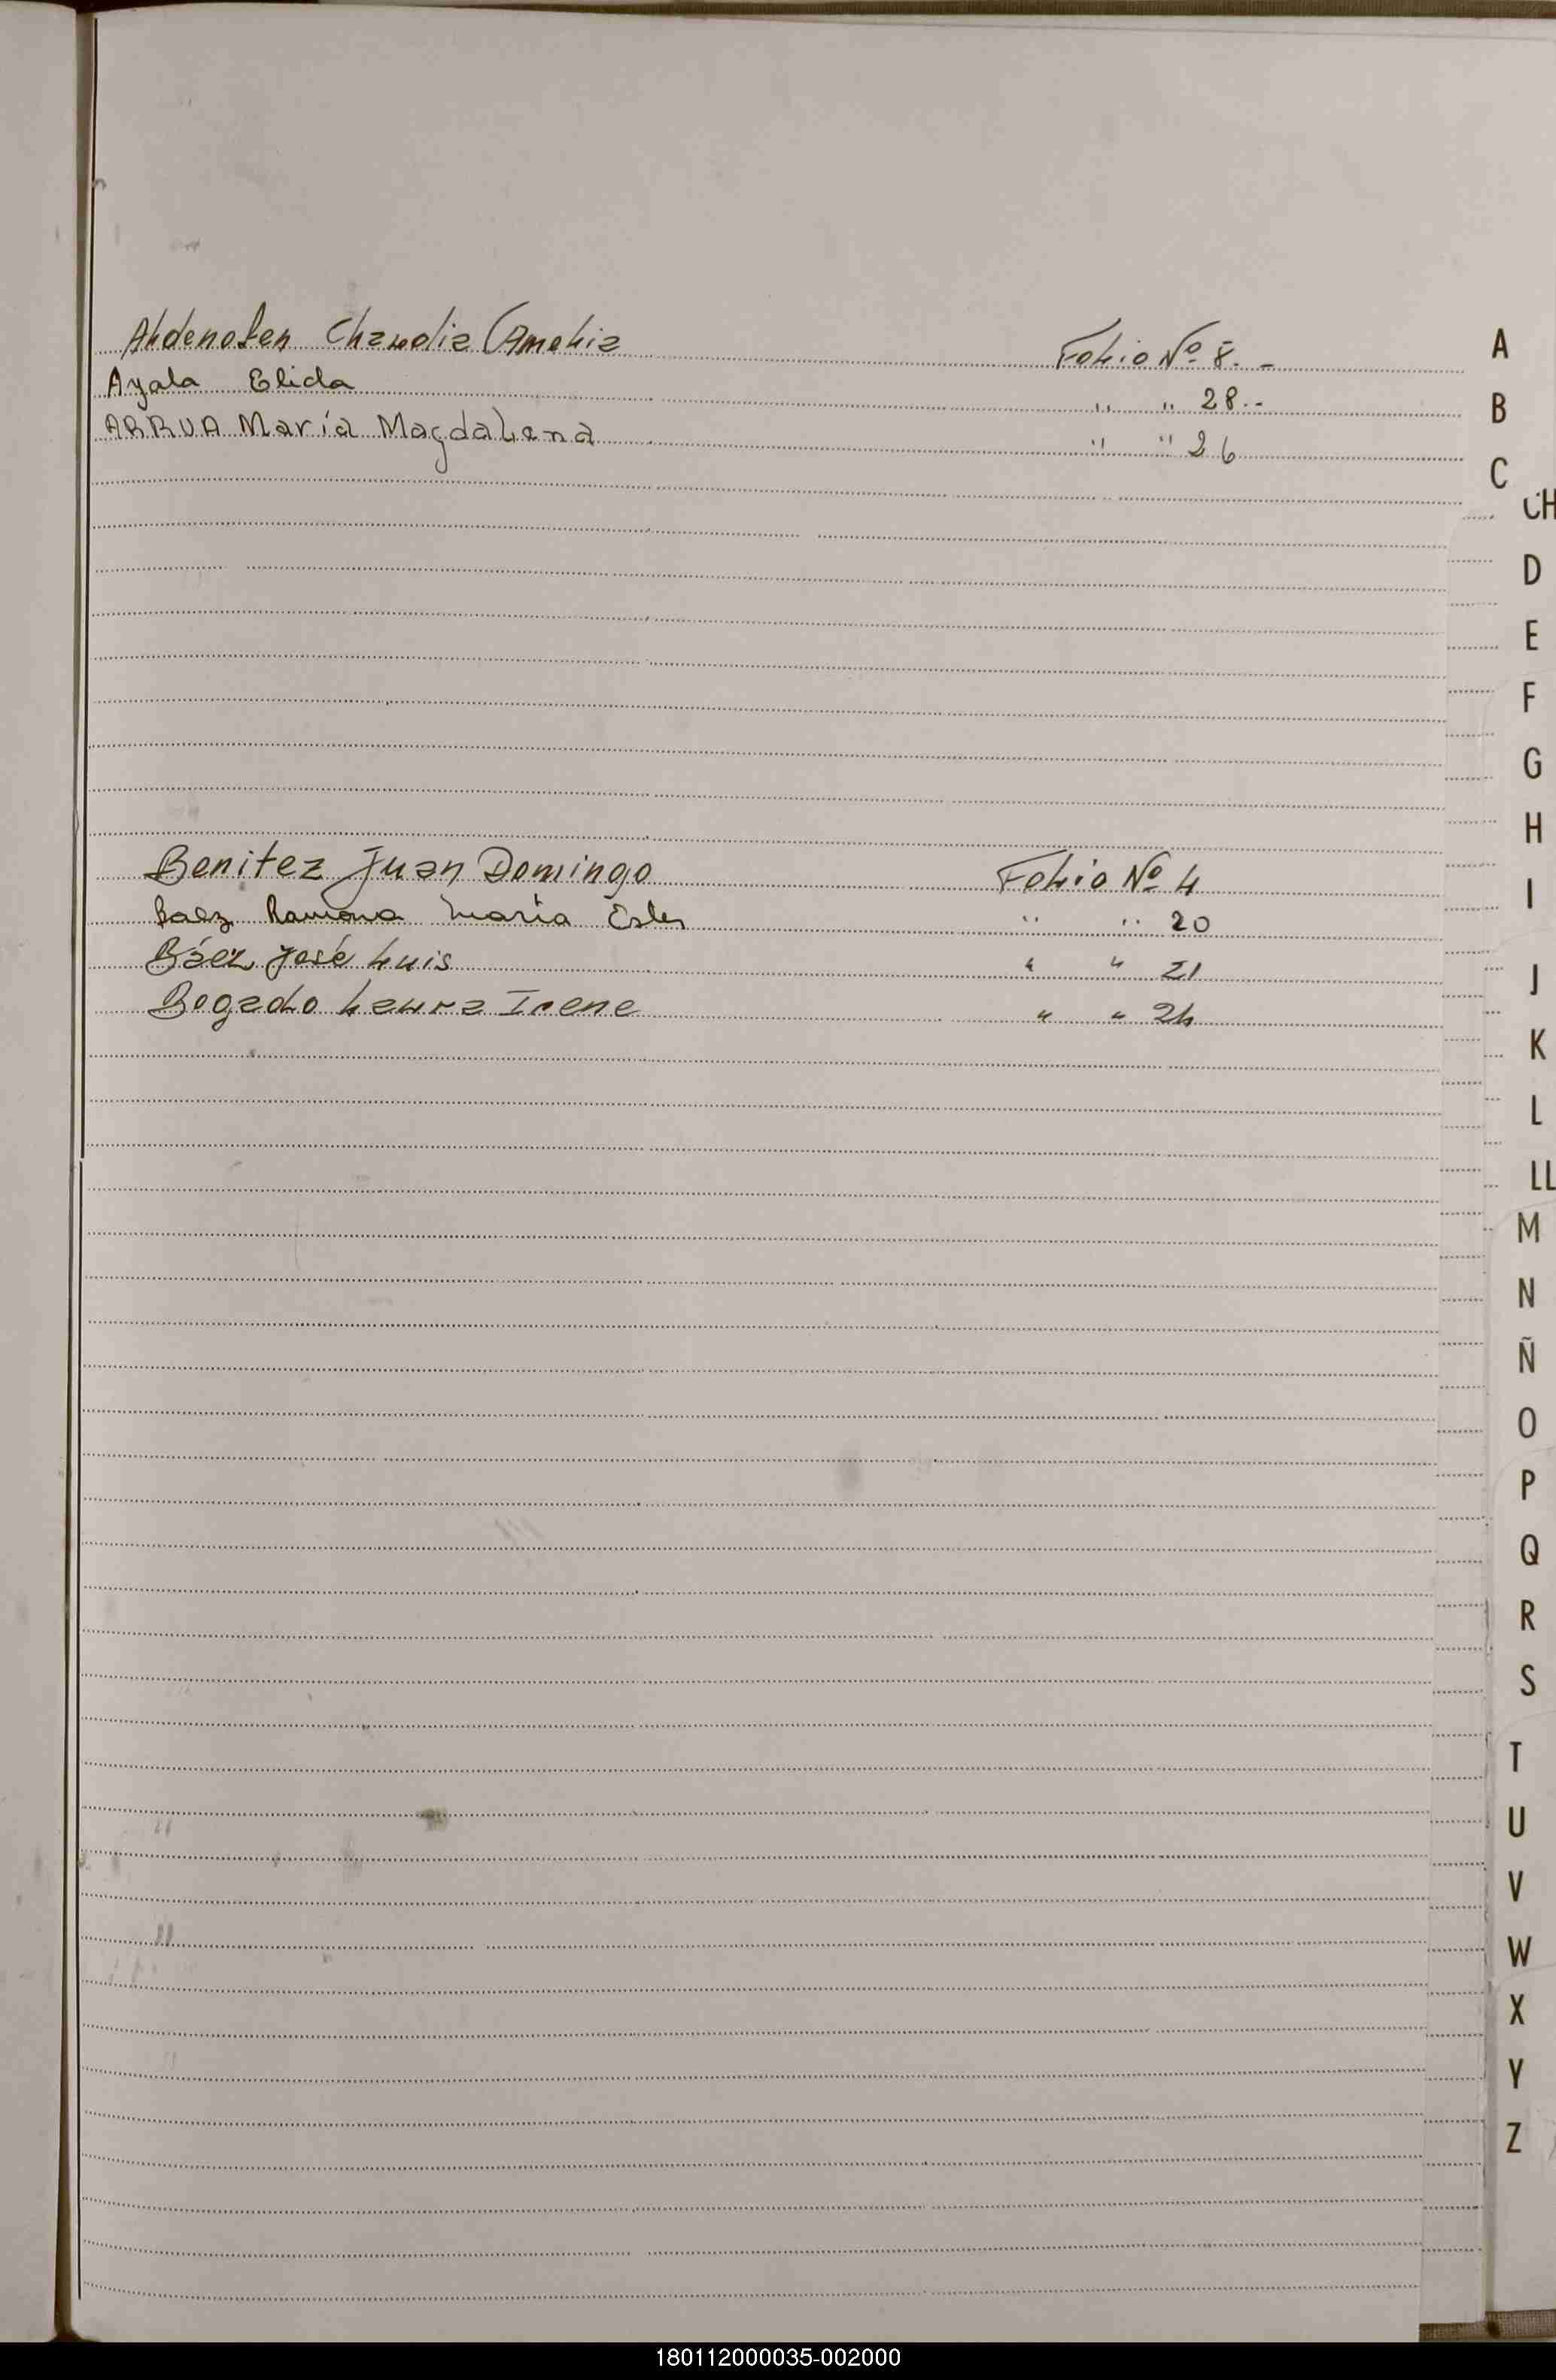 Aldenolen Claudia Amelia Folio Nº 8. -
Ayala Elida " " 28.-
ARRUA María Magdalena " " 26
Benitez Juan Domingo Folio Nº 4
Baez Ramona María Ester " " 20
Báez José Luis " " 21
Bogado Laura Irene " " 24
A
B
C
CH
D
E
F
G
H
I
J
K
L
LL
M
N
Ñ
O
P
Q
R
S
T
U
V
W
X
Y
Z
180112000035-002000